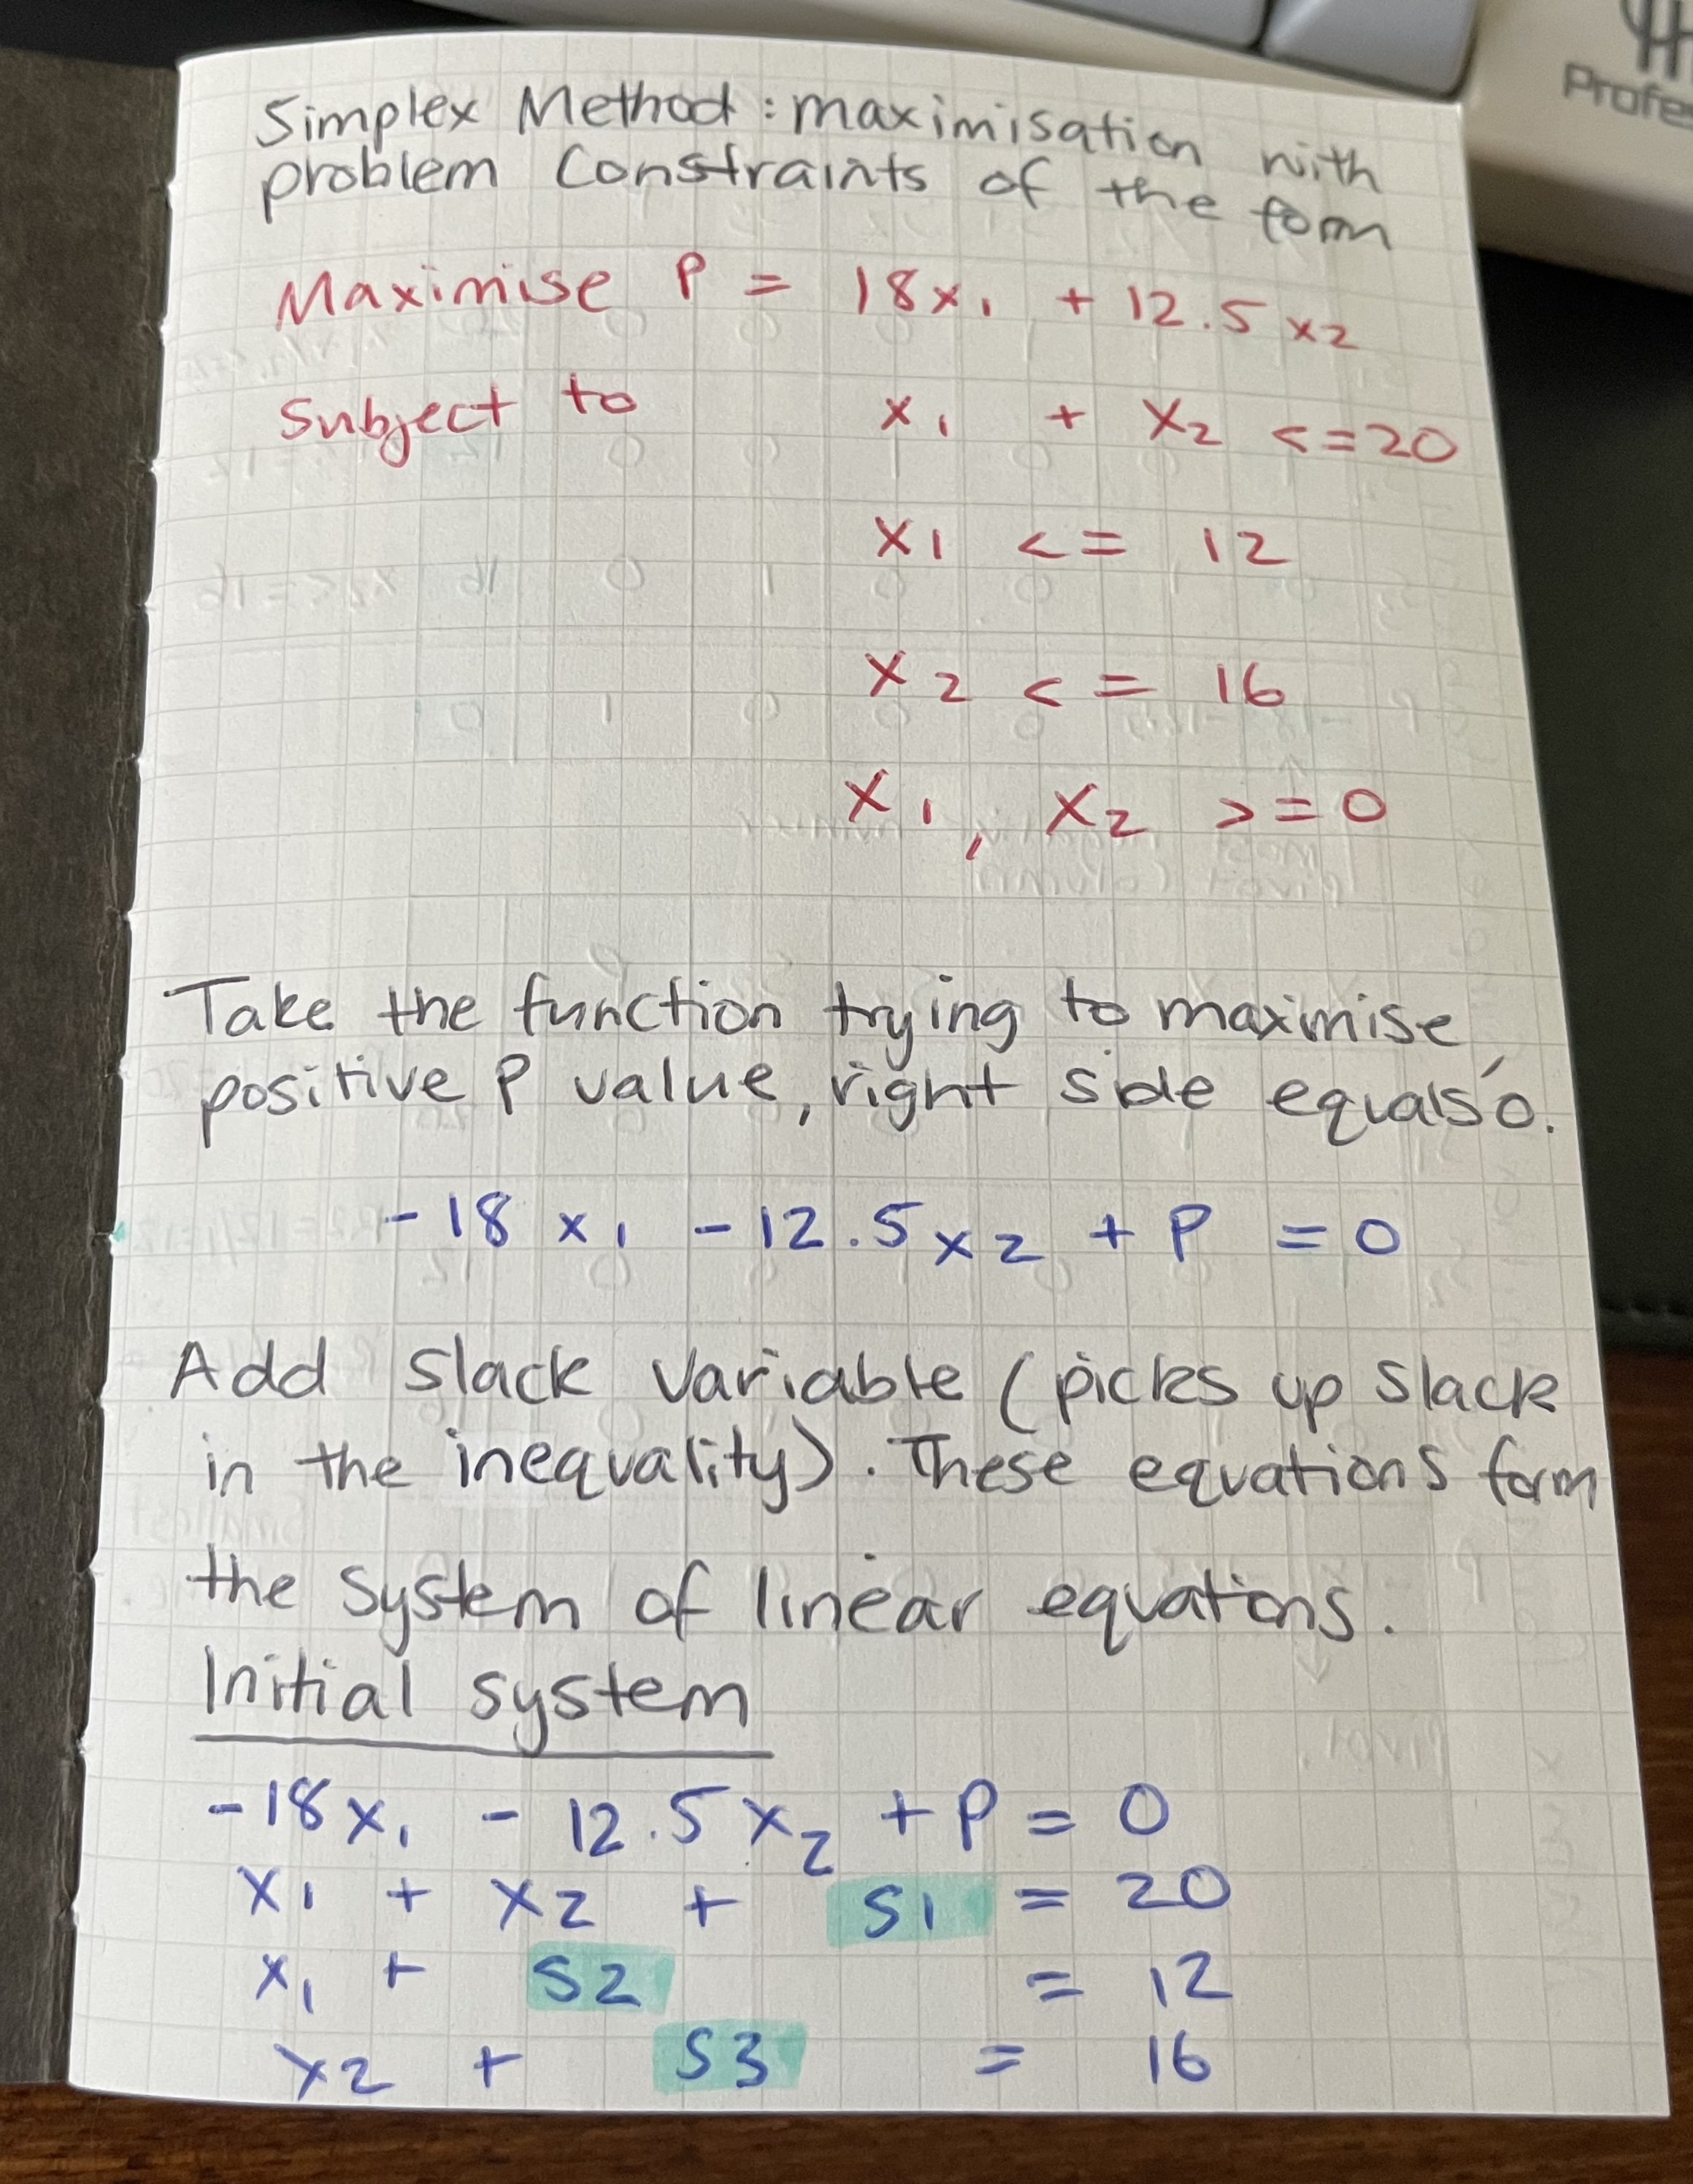 Profe
Simplex Method: maximisation with
problem constraints of the form
Maximise P = 18x1 + 12.5x2
Subject to x1 + x2 <=20
x1 <= 12
x2 <= 16
x1, x2 >=0
Take the function trying to maximise,
positive P value, right side equals 0.
-18x1 -12.5x2 + P = 0
Add slack variable (picks up slack
in the inequality). These equations form
the system of linear equations.
Initial system
-18x1 - 12.5x2 + P = 0
x1 + x2 + S1 = 20
x1 + S2 = 12
x2 + S3 = 16